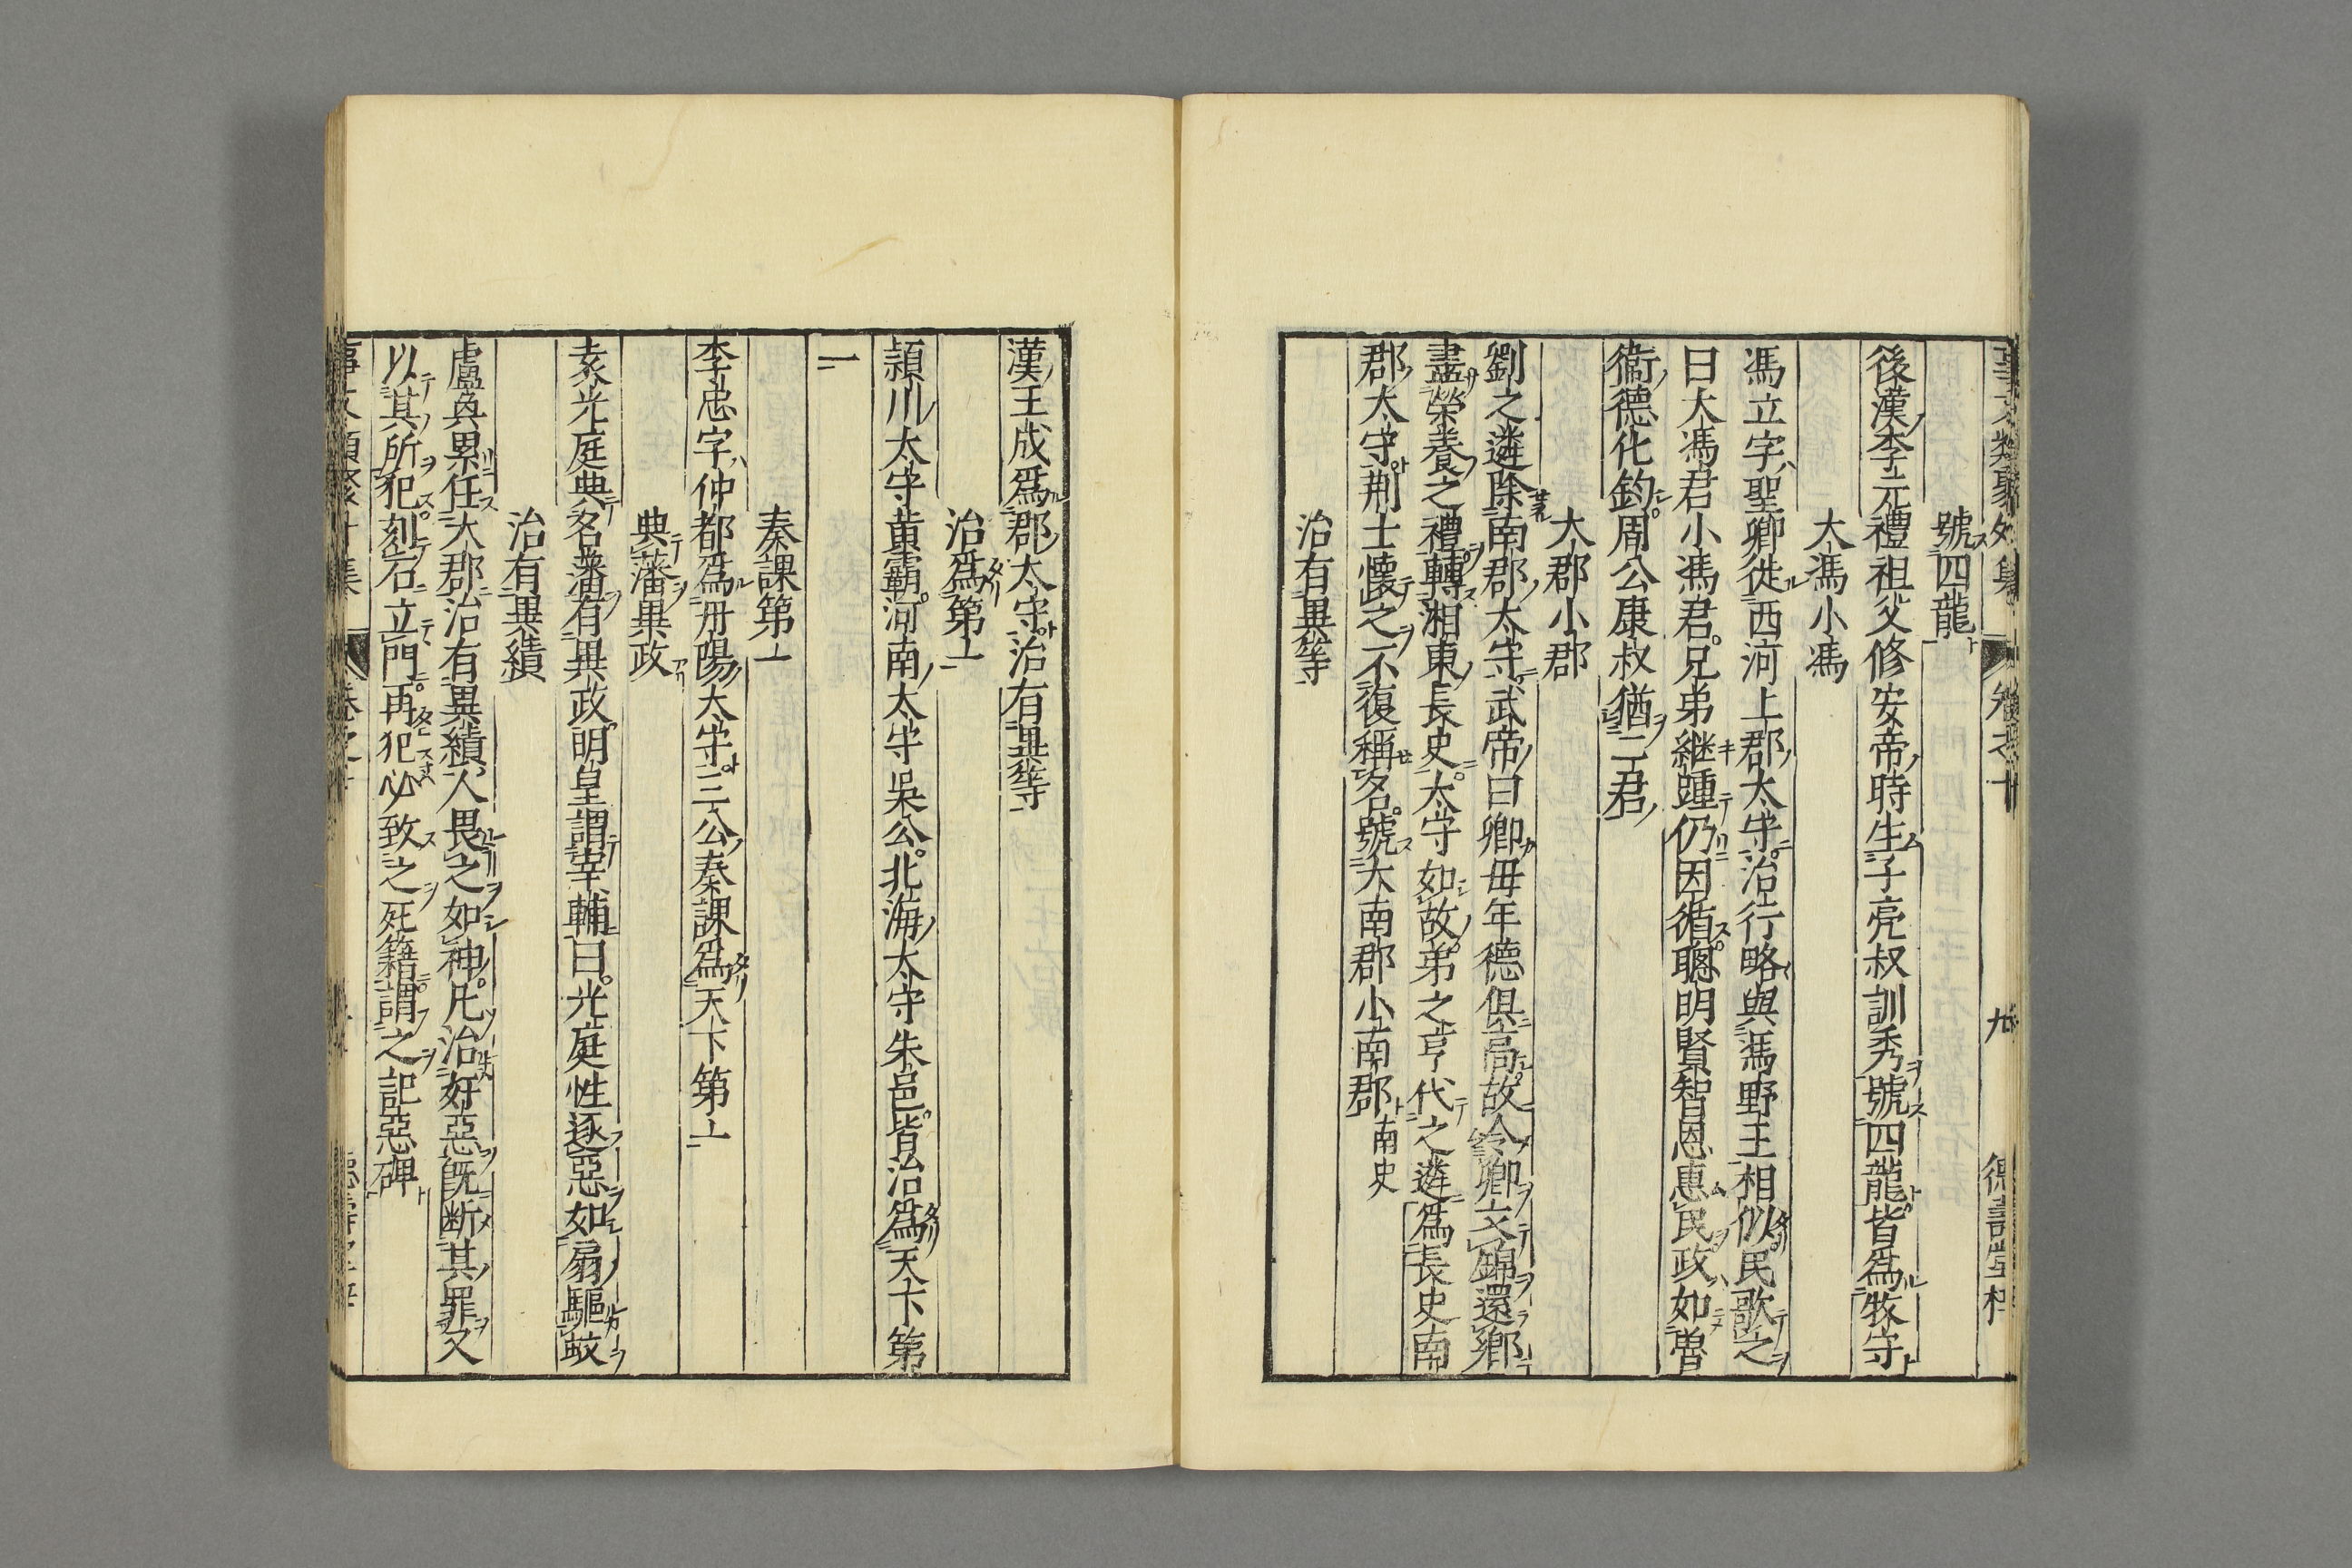 號四龍
後漢李元禮祖父修安帝時生子亮叔訓秀號四龍皆爲牧守
大馮小馮
馮立字聖卿徙西河上郡太守治行略與馮野王相似民歌之
曰大馮君小馮君兄弟継踵仍因循聰明賢智恩惠民政如魯
衞德化鈞周公康叔猶二君
大郡小郡
劉之遴除南郡太守武帝曰卿毋年德俱高故令卿文錦還鄉
盡榮養之禮轉湘東長史太守如故弟之亨代之遴爲長史南
郡太守荊士懐之不復稱名號大南郡小南郡南史
治有異等
漢王成爲郡太守治有異等
治爲第一
頴川太守黄霸河南太守吳公北海太守朱邑皆治爲天下第
一
奏課第一
李忠字仲都爲丹陽太守三公奏課爲天下第一
典藩異政
袁光庭典名藩有異政明皇謂宰輔曰光庭性逐惡如扇驅蚊
治有異績
盧奐累任大郡治有異績人畏之如神凡治好惡既断其罪又
以其所犯刻石立門再犯必致之死籍謂之記惡碑